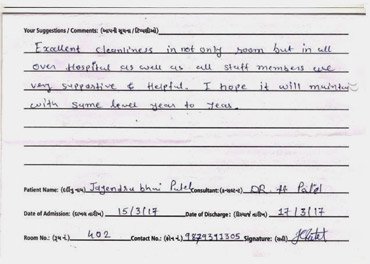 Your Suggestions / Comments: (આપની સૂચના / ટિપ્પણીઓ)
Excellent cleanliness in not only room but in all
over Hospital as well as all staff members are
very supportive & Helpful. I hope it will maintain
with same level year to year.
Patient Name: (દર્દીનું નામ) Jagendra bhai Patel Consultant: (કન્સલ્ટન્ટ) DR. H Patel
Date of Admission: (દાખલ તારીખ) 15/3/17 Date of Discharge: (ડિસ્ચાર્જ તારીખ) 17/3/17
Room No.: (રૂમ નં.) 402 Contact No.: (ફોન નં.) 9879391305 Signature: (સહી)